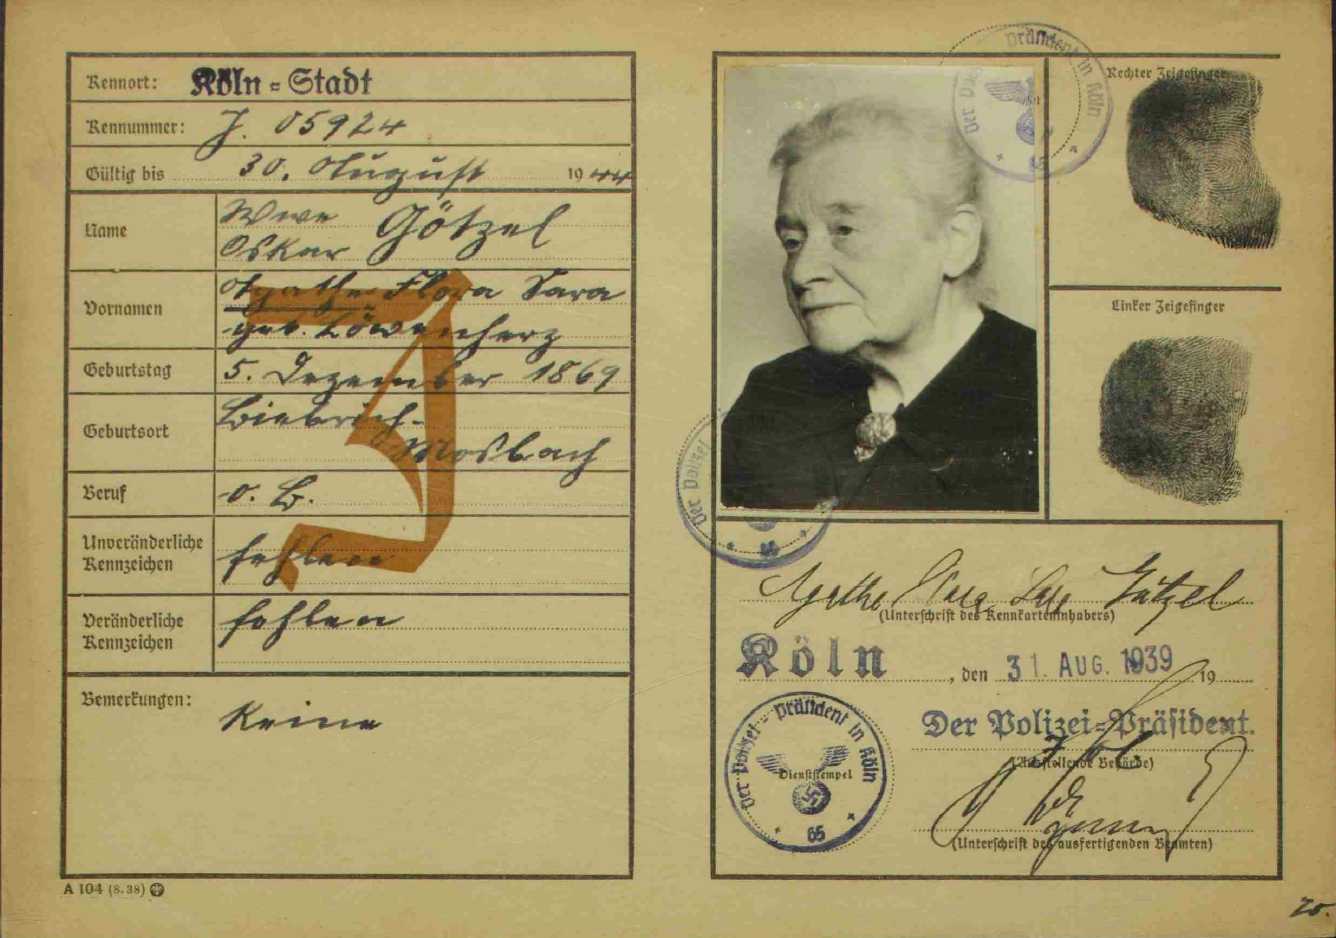 Kennort: Köln-Stadt
Kennummer: J. 05924
Gültig bis 30. August 1944
Name Wwe Götzel
Oskar
Vornamen Agathe Flora Sara
geb. Löwenherz
Geburtstag 5. Dezember 1869
Geburtsort Biebrich-
Mosbach
Beruf o. B.
Unveränderliche
Kennzeichen fehlen
Veränderliche
Kennzeichen fehlen
Bemerkungen: Keine
J
A 104 (8. 38)
Der Polizei-Präsident in Köln
65
Rechter Zeigefinger
Linker Zeigefinger
Der Polizei
65
Agathe Flora Sara Götzel
(Unterschrift des Kennkarteninhabers)
Köln, den 31. AUG. 1939 19
Der Polizei-Präsident in Köln
Dienststempel
65
Der Polizei-Präsident.
(Ausstellende Behörde)
(Unterschrift des ausfertigenden Beamten)